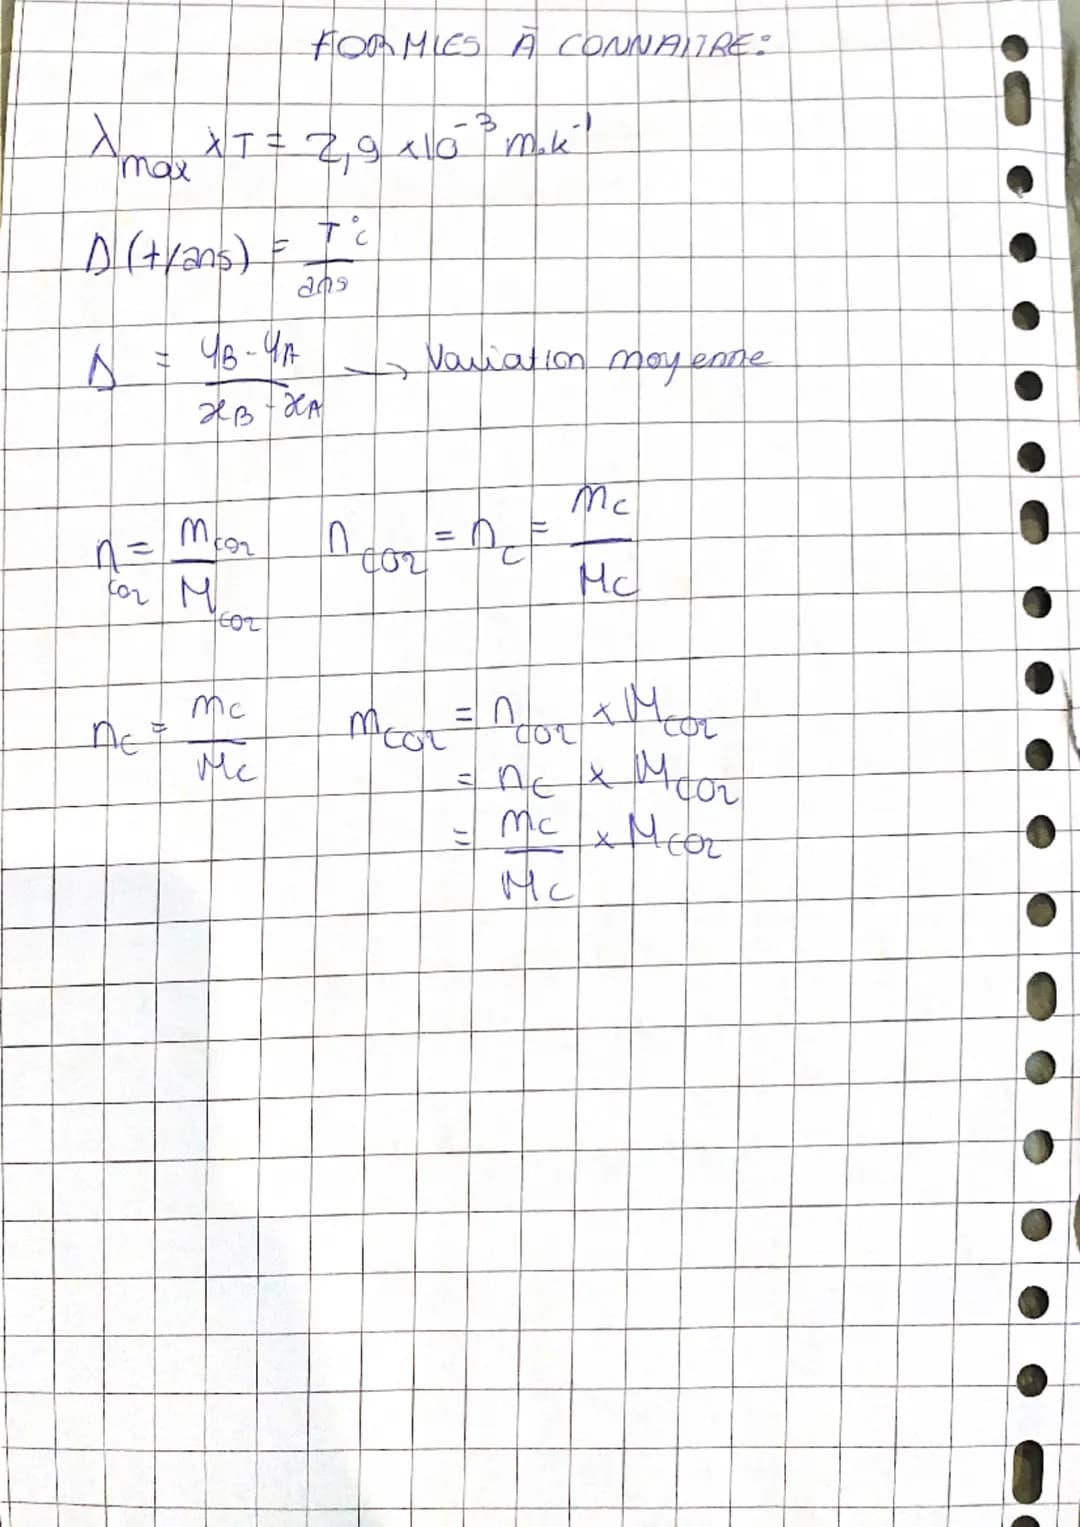 FORMLES À CONNAITRE:
λmax × T = 2,9 ×10⁻³ m.k⁻¹
Δ (t/ans) = T°c / ans
Δ = yB - yA / xB - xA → Variation moyenne
nco2 = mco2 / Mco2   nco2 = nc = mc / Mc
nc = mc / Mc   mco2 = nco2 × Mco2
= nc × Mco2
= mc / Mc × Mco2